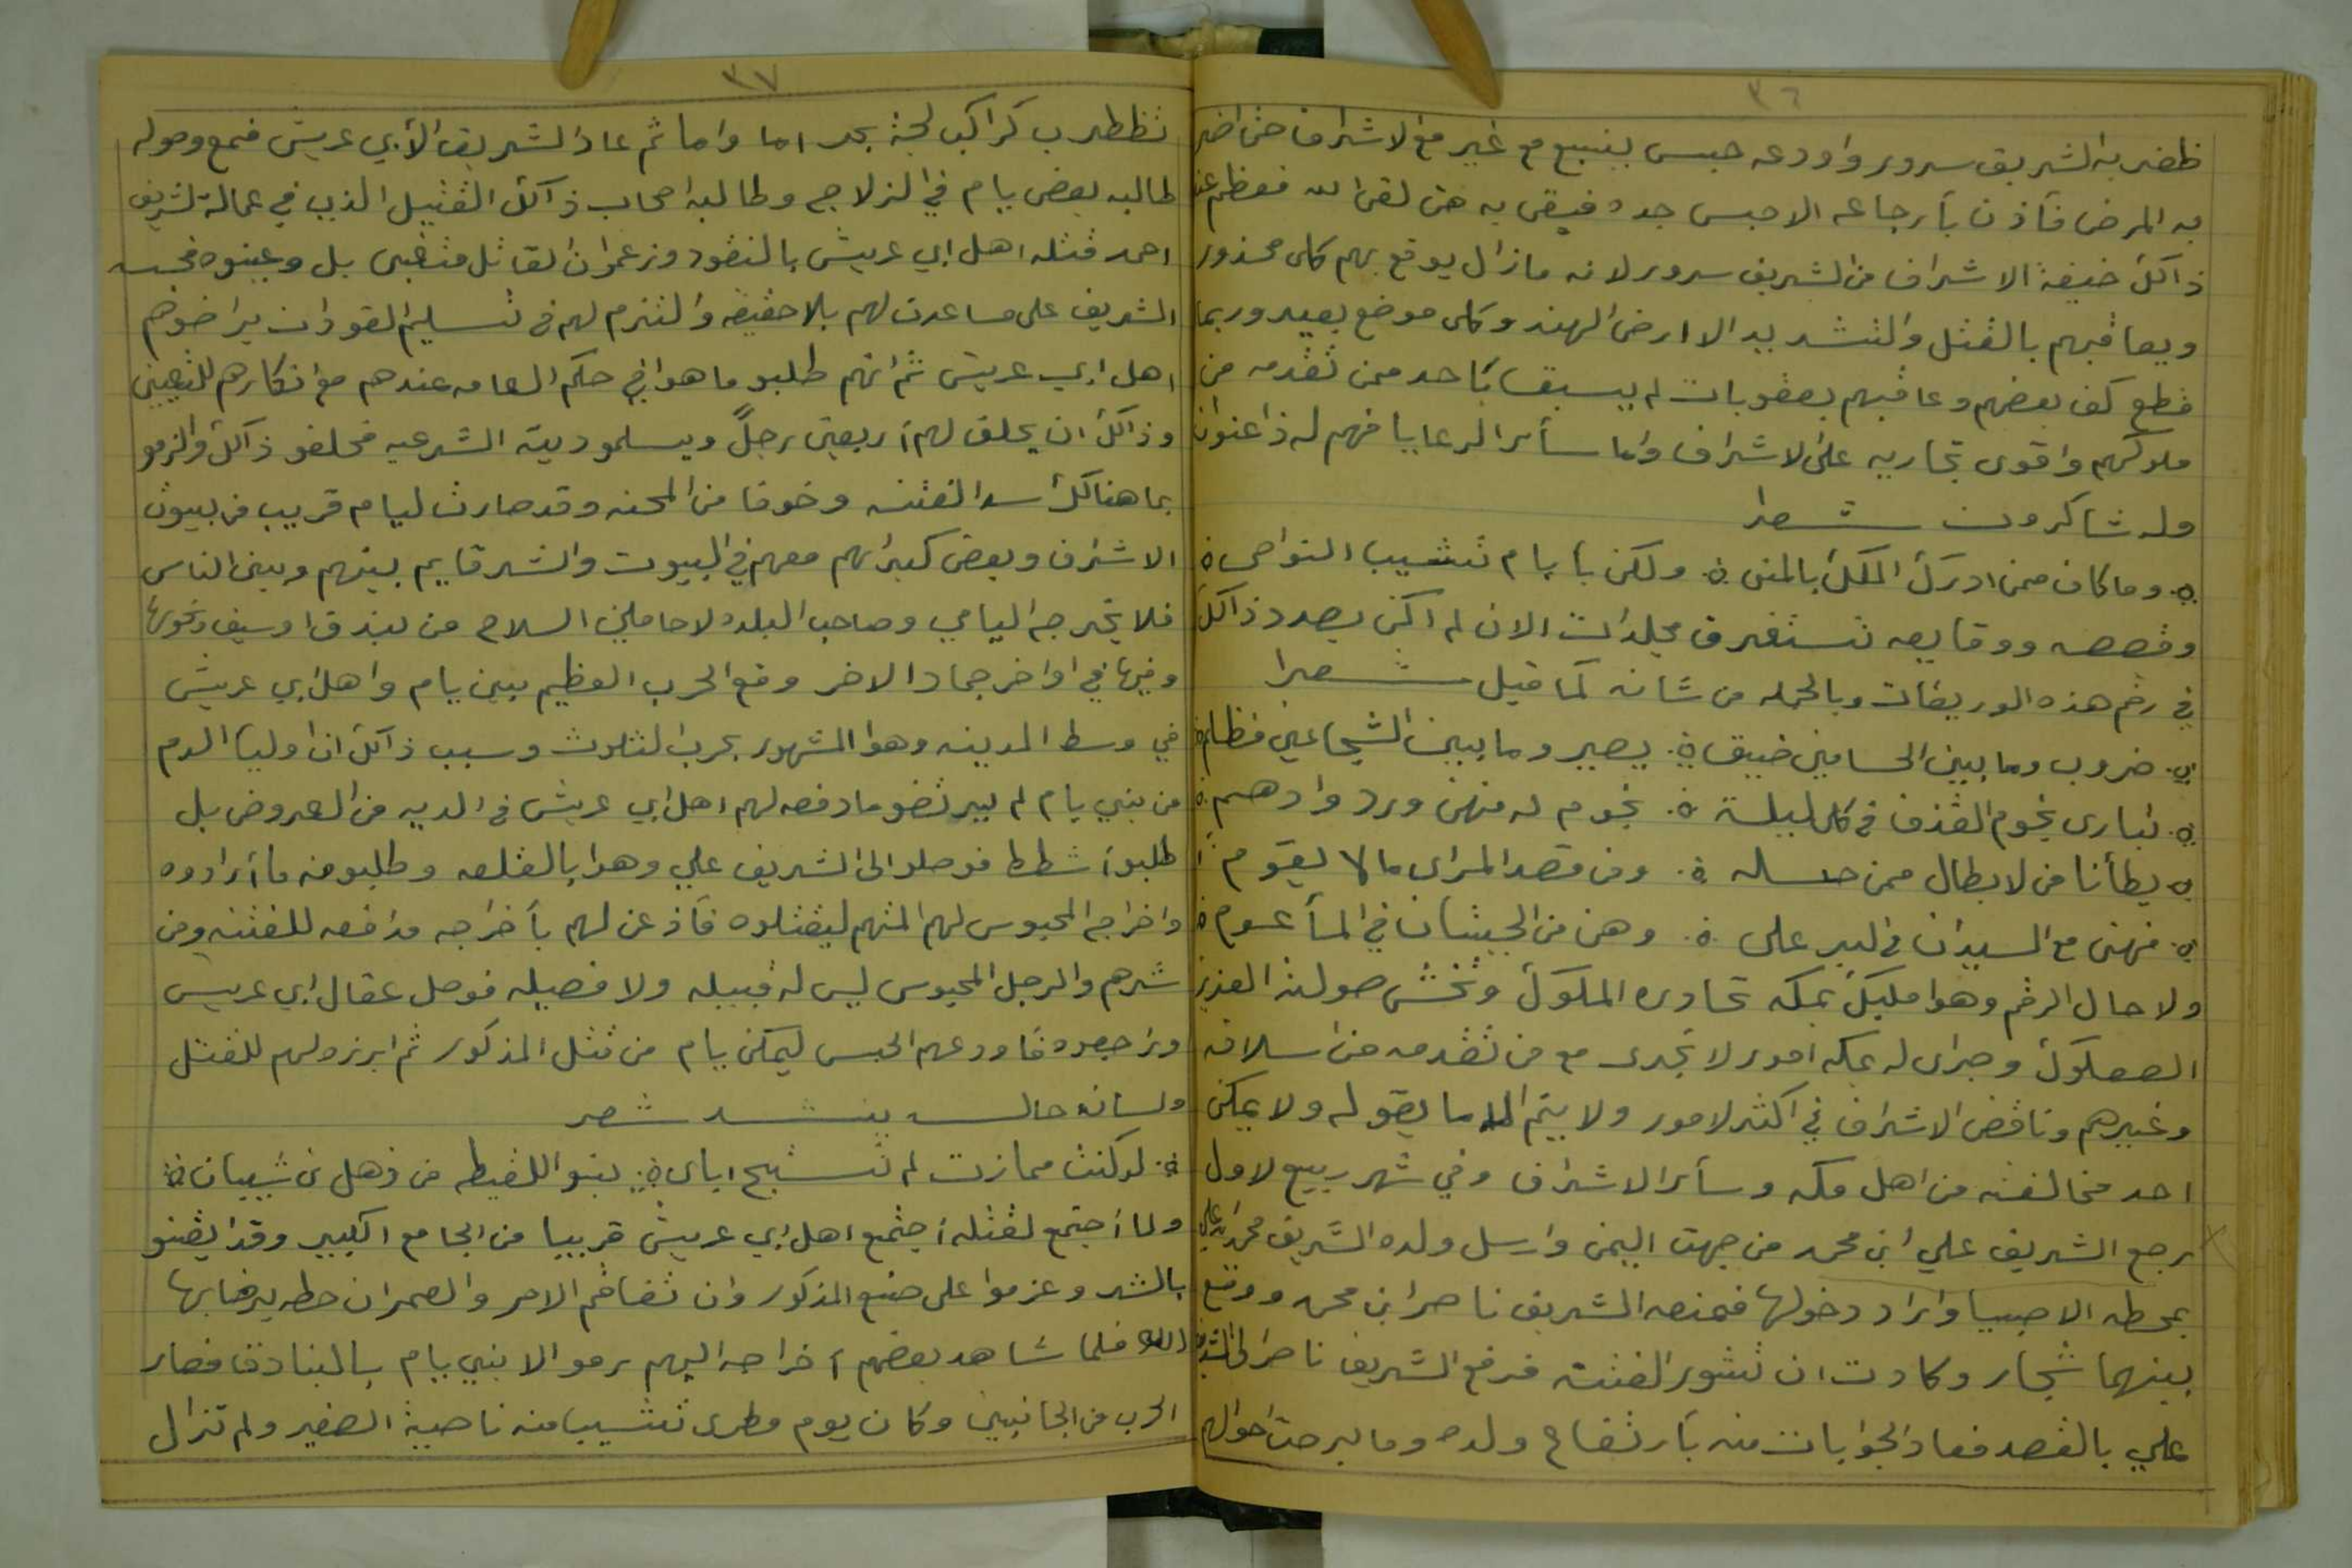 ٣٦
ظفر به الشريف سرور واودعه حبس بينبع مع غير من الاشراف حتى اضر
به المرض فأذن بأرجاعه الا حبس جده فبقى به حتى لقى الله فعظم عند
ذالك خيفة الاشراف من الشريف سرور لانه مازال يوقع بهم كل محذور
ويعاقبهم بالقتل والتشديد الا ارض الهند وكل موضع بعيد وربما
قطع كف بعضهم وعاقبهم بعقوبات لم يسبقا بأحد ممن تقدمه من
ملوكهم واقوى تجاربه على الاشراف واما سأىر الرعايا فهم له ذاعنون
وله شاكرون شعرا
وما كان ممن ادرك الملك بالمنى ولكن بأيام تشيب النواصى
وقصصه ووقايعه تستغرق مجلدات الان لم اكن بصدد ذالك
في رقم هذه الوريقات وبالجمله من شانه كما قيل شعرا
ضروب وما بين الحسامين ضيق بصير وما بين الشجاعين مظلم
تبارى نجوم القذف في كل ليلة نجوم له منهن ورد وادهم
يطأنا من الابطال ممن حمله ومن قصد المرى مالا يقوم
فهنى مع السيدان في البر على وهن من الجيتان في المأ عوم
ولا حال الرقم وهوا مليك بمكه تحاوره الملوك وتخشى صولته العزيز
الصعلوك وجرى له بمكه امور لا تجرى مع من تقدمه من اسلافه
وغيرهم وناقض الاشراف في اكثر الامور ولا يتم الا ما يقوله ولا يمكن
احد مخالفته من اهل مكه وسأىر الاشراف وفي شهر ربيع لاول
رجع الشريف علي ابن محمد من جهت اليمن وارسل ولده الشريف محمد ابن علي
بمحطه الا صبيا واراد دخولها فمنعه الشريف ناصر ابن محمد ووقع
بينهما شجار وكادت ان تثور الفتنه فرفع الشريف ناصر الى الشريف
علي بالقصد فعاد الجوابات منه بأرتفاع ولده وما برحت احوالهم
٣٧
تظطرب كراكب لجة بحر اما واما ثم عاد الشريف الأ بي عريش فمع وصوله
طالبه بعض يام في الزلاج وطالبه اصحاب ذالك القتيل الذي في عمالة الشريف
احمد قتله اهل ابي عريش بالنقود وزعموان القاتل متغبى بل وعينوه فحبسه
الشريف على مساعدت لهم بلا حقيقه والتزم لهم في تسليم القود ان يراضوهم
اهل ابي عريش ثم انهم طلبو ما هوا في حكم العامه عندهم مع انكارهم للتعيين
وذالك ان يحلف لهم أربعين رجلً ويسلمو دية الشرعيه فحلفو ذالك والزمو
بما هنالك سد الفتنه وخوفا من المحنه وقد صارت ليام قريب من بيوت
الاشراف وبعض كبرائهم معهم في البيوت والشر قايم بينهم وبين الناس
فلا يخرج اليامي وصاحب البلده لا حاملين السلاح من بندق او سيف ونحوها
وفيها في اواخر جماد الاخر وقع الحرب العظيم بين يام واهل ابي عريش
في وسط المدينه وهوا المشهور بحرب الثلوث وسبب ذالك ان اوليا الدم
من بني يام لم يرتضو ما دفعه لهم اهل ابي عريش في الديه من العروض بل
طلبوأ شطط فوصلو الى الشريف علي وهوا بالقلعه وطلبو منه ما أرادوه
واخراج المحبوس لهم المتهم ليقتلوه فأذعن لهم بأخراجه مدافعه للفتنه ومن
شرهم والرجل المحبوس ليس له قبيله ولا فصيله فوصل عقال ابي عريس
وراجعوه فأودعهم الحبس ليمكن يام من قتل المذكور ثم ابرزو لهم للقتل
ولسانه حاله ينشد شعر
لو كنت ممازن لم تستبح ابلى بنو اللقيطه من ذهل بن شيبان
ولما أجتمع لقتله أجتمع اهل ابي عريش قريبا من الجامع الكبير وقد ايقنو
بالشر وعزموا على منع المذكور وان تفاقم الامر والعمران حطه يرضابها
الله فلما شاهد بعضهم أخراجه اليهم رمو الا بني يام بالبنادق فصار
الحرب من الجانبين وكان يوم مطرى تشيب منه ناصية الصغير ولم تزال